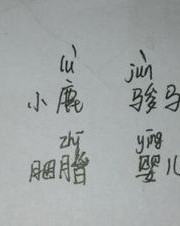 lù jùn
小鹿 骏马
zhī yīng
胭脂 婴儿